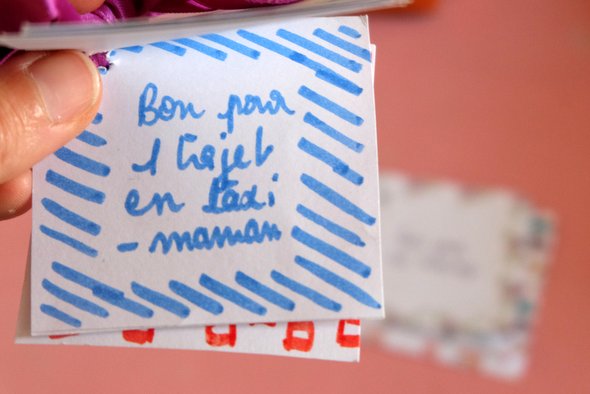 Bon pour
1 trajet
en taxi
- maman